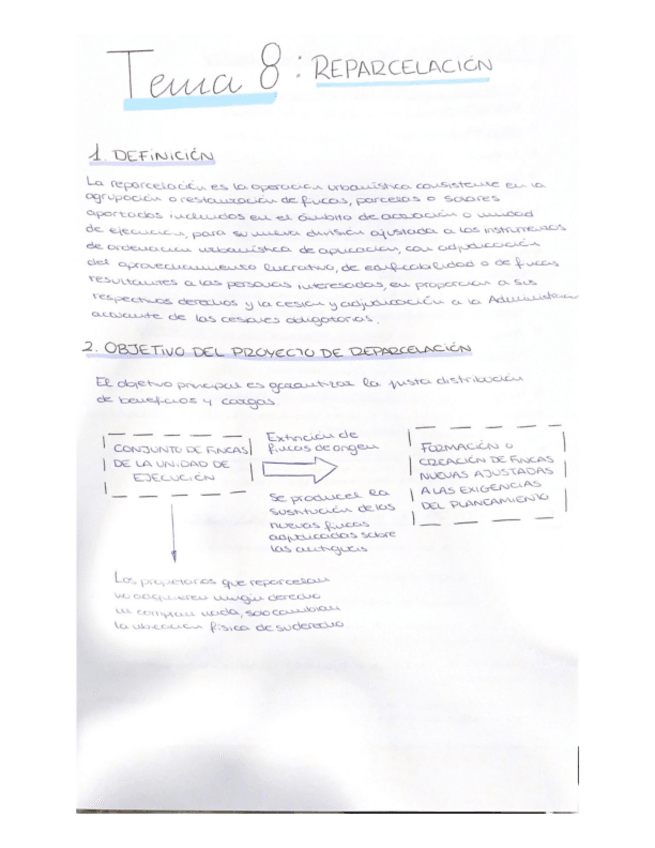 Tema 8: REPARCELACIÓN
1. DEFINICIÓN
La reparcelación es la operación urbanística consistente en la
agrupación o restauración de fincas, parcelas o solares
aportados incluidos en el ámbito de actuación o unidad
de ejecución, para su nueva división ajustada a los instrumentos
de ordenación urbanística de aplicación, con adjudicación
del aprovechamiento lucrativo, de edificabilidad o de fincas
resultantes a las personas interesadas, en proporción a sus
respectivos derechos y la cesión y adjudicación a la Administración
actuante de las cesiones obligatorias.
2. OBJETIVO DEL PROYECTO DE REPARCELACIÓN
El objetivo principal es garantizar la justa distribución
de beneficios y cargas
CONJUNTO DE FINCAS
DE LA UNIDAD DE
EJECUCIÓN
Extinción de
fincas de origen
Se produce la
sustitución de las
nuevas fincas
adjudicadas sobre
las antiguas
FORMACIÓN O
CREACIÓN DE FINCAS
NUEVAS AJUSTADAS
A LAS EXIGENCIAS
DEL PLANEAMIENTO
Los propietarios que reparcelan
no adquieren ningún derecho
ni compran nada, solo cambian
la ubicación física de su derecho